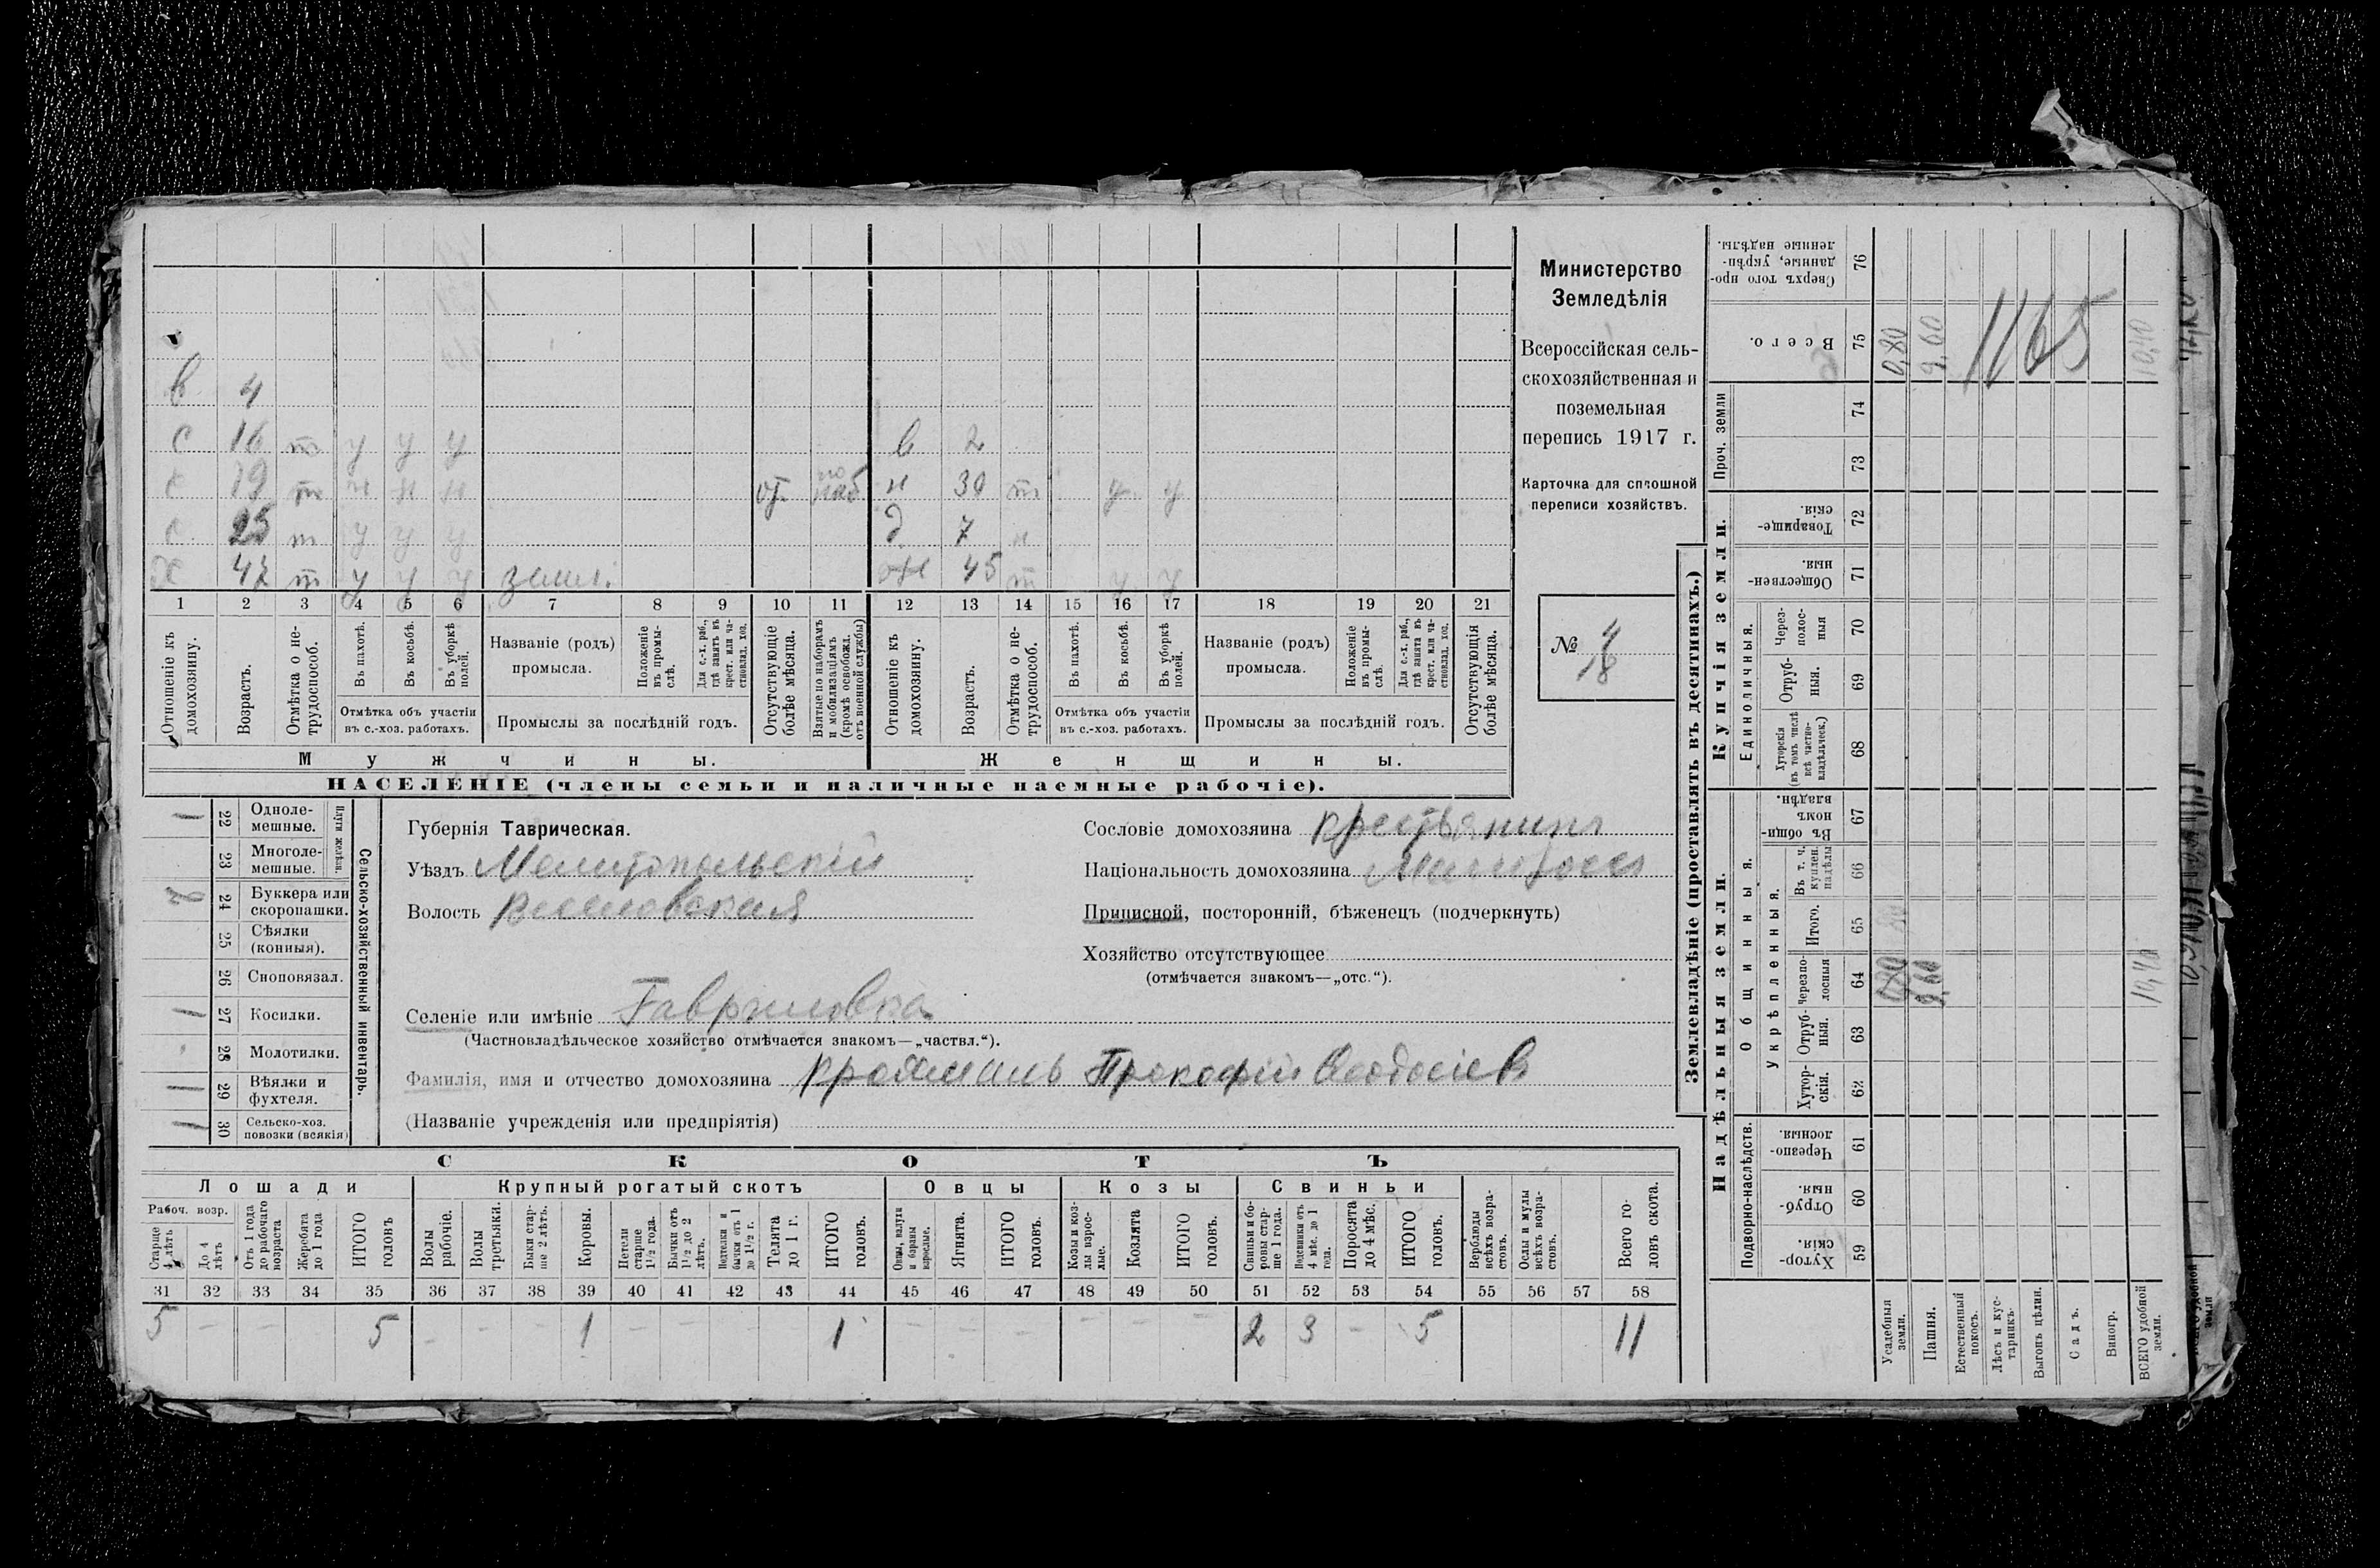 Министерство
Земледѣлія
Всероссійская сель-
скохозяйственная и
поземельная
перепись 1917 г.
Карточка для сплошной
переписи хозяйствъ.
№ 4
18
в 4
с 16 т у у у в 2
с 19 т н н н от. по наб н 30 т у у
с 25 т у у у д 7 н
х 47 т у у у земл. ж 45 т у у
1 2 3 4 5 6 7 8 9 10 11 12 13 14 15 16 17 18 19 20 21
Отношеніе къ домохозяину.
Возрастъ.
Отмѣтка о не-трудоспособ.
Въ пахотѣ.
Въ косьбѣ.
Въ уборкѣ полей.
Отмѣтка объ участіи
въ с.-хоз. работахъ.
Названіе (родъ)
промысла.
Положеніе въ промы-слѣ.
Для с.-х. раб., гдѣ занятъ въ крест. или ча-стновлад. хоз.
Промыслы за послѣдній годъ.
Отсутствующіе болѣе мѣсяца.
Взятые по наборамъ и мобилизаціямъ (кромѣ освобожд. отъ военной службы)
Отношеніе къ домохозяину.
Возрастъ.
Отмѣтка о не-трудоспособ.
Въ пахотѣ.
Въ косьбѣ.
Въ уборкѣ полей.
Отмѣтка объ участіи
въ с.-хоз. работахъ.
Названіе (родъ)
промысла.
Положеніе въ промы-слѣ.
Для с.-х. раб., гдѣ занята въ крест. или ча-стновлад. хоз.
Промыслы за послѣдній годъ.
Отсутствующія болѣе мѣсяца.
Мужчины. Женщины.
НАСЕЛЕНІЕ (члены семьи и наличные наемные рабочіе).
Сельско-хозяйственный инвентарь.
1 22 Одноле-мешные.
23 Многоле-мешные.
24 Буккера или скоропашки.
25 Сѣялки (конныя).
26 Сноповязал.
1 27 Косилки.
28 Молотилки.
1 29 Вѣялки и фухтеля.
1 30 Сельско-хоз. повозки (всякія)
Губернія Таврическая.
Уѣздъ Мелитопольскій
Волость Веселовская
Сословіе домохозяина крестьянинъ
Національность домохозяина Малоросъ
Приписной, посторонній, бѣженецъ (подчеркнуть)
Хозяйство отсутствующее
(отмѣчается знакомъ—„отс.“).
Селеніе или имѣніе Гавриловка
(Частновладѣльческое хозяйство отмѣчается знакомъ—„частвл.“).
Фамилія, имя и отчество домохозяина Прокофій Феодосіев
(Названіе учрежденія или предпріятія)
СКОТЪ
Лошади Крупный рогатый скотъ Овцы Козы Свиньи
Рабоч. возр.
Старше 4 лѣтъ
До 4 лѣтъ
Отъ 1 года до рабочаго возраста
Жеребята до 1 года
ИТОГО головъ
Волы рабочіе.
Волы третьяки.
Быки стар-ше 2 лѣтъ.
Коровы.
Нетели старше 1½ года.
Бычки отъ 1½ до 2 лѣтъ.
Подтелки и бычки отъ 1 до 1½ г.
Телята до 1 г.
ИТОГО головъ.
Овцы, валухи и бараны взрослые.
Ягнята.
ИТОГО головъ.
Козы и коз-лы взрос-лые.
Козлята
ИТОГО головъ.
Свиньи и бо-ровы стар-ше 1 года.
Подсвинки отъ 4 мѣс. до 1 года.
Поросята до 4 мѣс.
ИТОГО головъ.
Верблюды всѣхъ возра-стовъ.
Ослы и мулы всѣхъ возра-стовъ.
Всего го-ловъ скота.
31 32 33 34 35 36 37 38 39 40 41 42 43 44 45 46 47 48 49 50 51 52 53 54 55 56 57 58
5 – – – 5 – – – 1 – – – – 1 – – – – – – 2 3 – 5 11
Землевладѣніе (проставлять въ десятинахъ.)
Купчія земли.
Надѣльныя земли.
Сверхъ того про-данные, укрѣп-ленные надѣлы. 76
Всего. 75 0,80 9,60 10,40
1165
Проч. земли 74 73
Товарище-скія. 72
Обществен-ныя. 71
Единоличныя.
Через-полос-ныя 70
Отруб-ныя. 69
Хуторскія (въ томъ числѣ всѣ частно-владѣльческ.) 68
Общинныя.
Въ общи-номъ владѣн. 67
Укрѣпленныя.
Въ т. ч. куплен. надѣлы 66
Итого. 65
Черезпо-лосныя 64 9,60 10,40
Отруб-ныя. 63
Хутор-скія. 62
Подворно-наслѣдств.
Черезпо-лосныя. 61
Отруб-ныя. 60
Хутор-скія. 59
Усадебныя земли.
Пашня.
Естественный покосъ.
Лѣсъ и кус-тарникъ.
Выгонъ цѣлин.
Садъ.
Виногр.
ВСЕГО удобной земли.